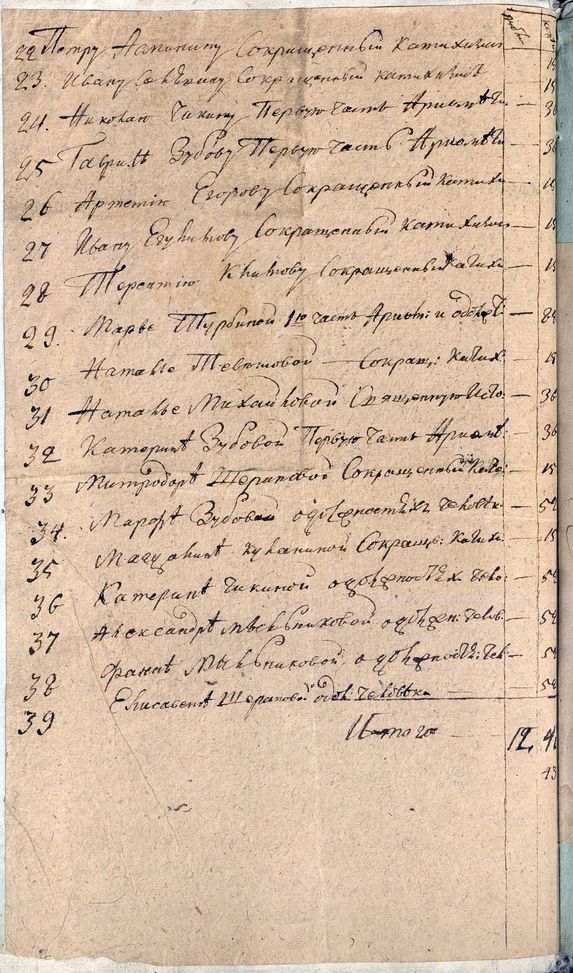 рубли копе
22 Петру Аникину Сокращенный катихизис 15
23. Ивану Сенькину Сокращенный катихизис 15
24. Николаю Чикину Первую часть Арифмети — 36
25 Гаврилѣ Зубову Первую часть Арифмети — 36
26 Артемію Егорову Сокращенный катихи — 15
27 Ивану Сокращенный катихизис — 15
28 Терентію Климову Сокращенный катихи — 15
29. Марье Турбиной 1ю часть Арифм: и о долж:
30 Наталье — Сокращ: катих: 15
31 Наталье Михайловой Священную Исто — 36
32 Катеринѣ Зубовой Первую часть Арифм: 36
33 Митродорѣ Шераповой Сокращенный кати: 15
34. Марфѣ Зубовой о должностяхъ человѣ —
35 Сокращ: катихи — 15
36 Катеринѣ Чикиной о должностях чело:
37 Александрѣ Мыльниковой о должн: челов —
38 Фаинѣ Мыльниковой о должностя: чел —
39 Елисаветѣ Шераповой о дол: человѣка —
Итого — 12,